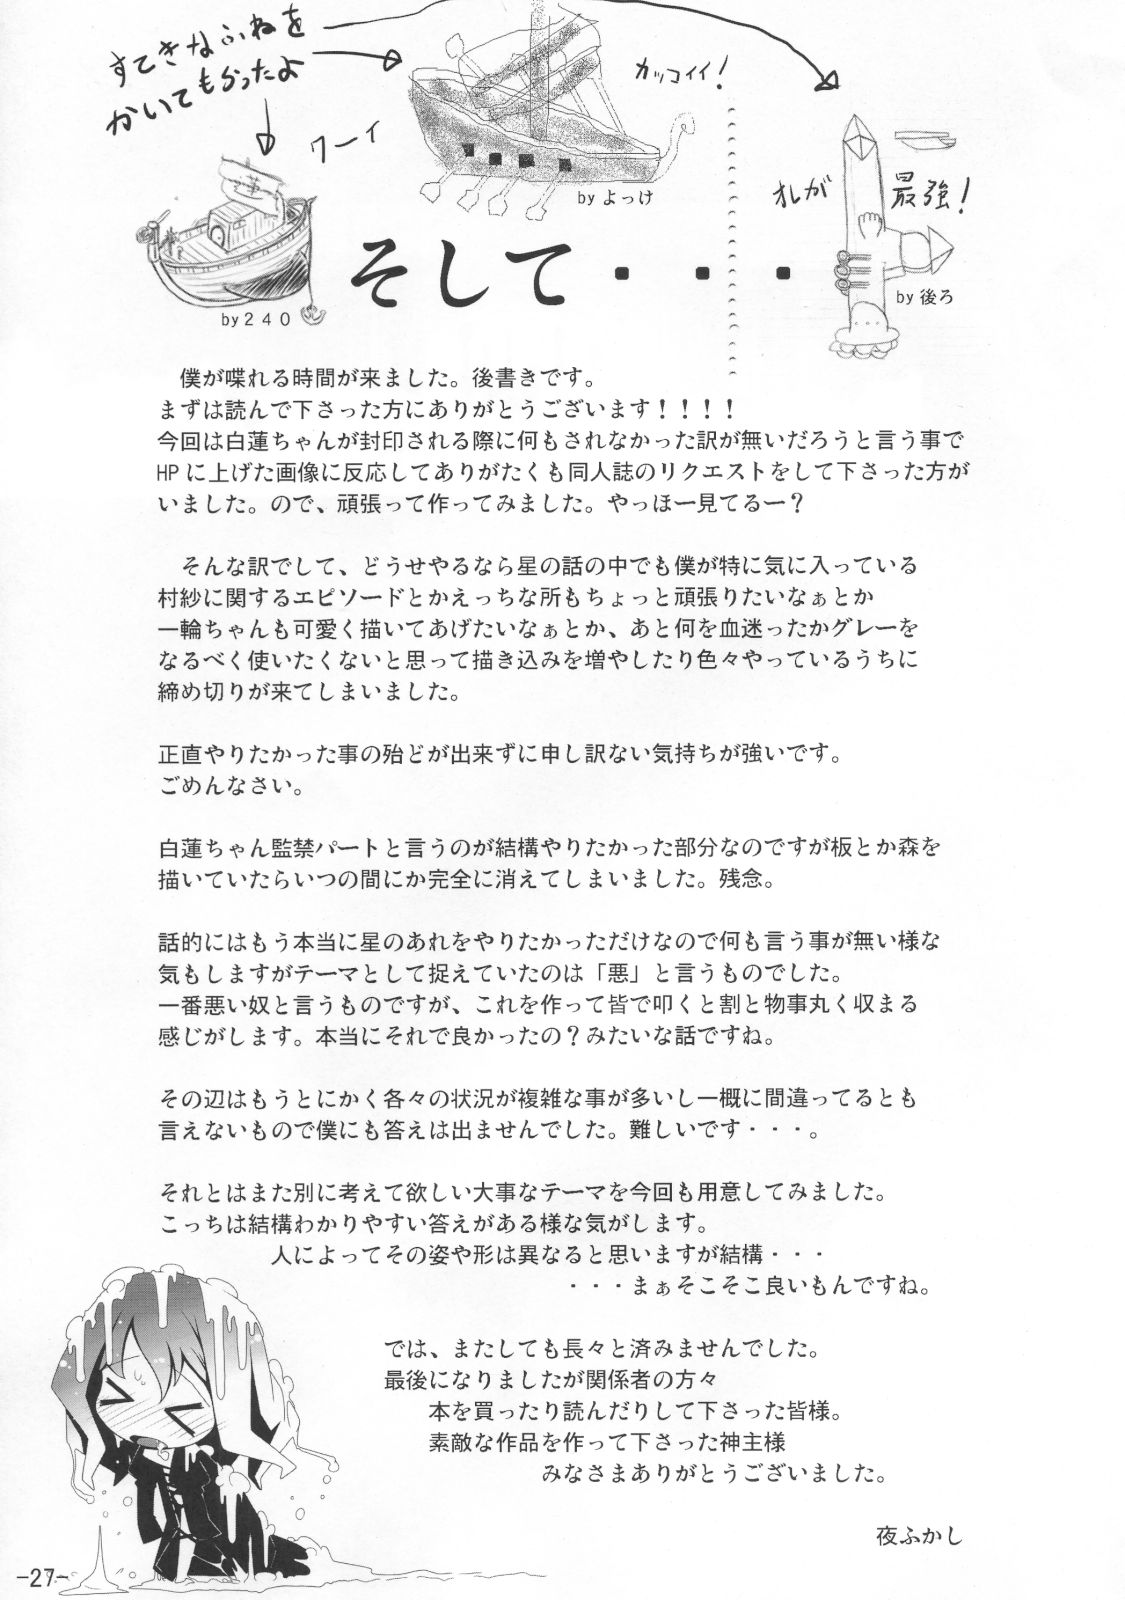 すてきなふねを
かいてもらったよ
ワーイ
カッコイイ！
by よっけ
オレが最強！
by 後ろ
by２４０
そして・・・
僕が喋れる時間が来ました。後書きです。
まずは読んで下さった方にありがとうございます！！！！
今回は白蓮ちゃんが封印される際に何もされなかった訳が無いだろうと言う事で
HPに上げた画像に反応してありがたくも同人誌のリクエストをして下さった方が
いました。ので、頑張って作ってみました。やっほー見てるー？
そんな訳でして、どうせやるなら星の話の中でも僕が特に気に入っている
村紗に関するエピソードとかえっちな所もちょっと頑張りたいなぁとか
一輪ちゃんも可愛く描いてあげたいなぁとか、あと何を血迷ったかグレーを
なるべく使いたくないと思って描き込みを増やしたり色々やっているうちに
締め切りが来てしまいました。
正直やりたかった事の殆どが出来ずに申し訳ない気持ちが強いです。
ごめんなさい。
白蓮ちゃん監禁パートと言うのが結構やりたかった部分なのですが板とか森を
描いていたらいつの間にか完全に消えてしまいました。残念。
話的にはもう本当に星のあれをやりたかっただけなので何も言う事が無い様な
気もしますがテーマとして捉えていたのは「悪」と言うものでした。
一番悪い奴と言うものですが、これを作って皆で叩くと割と物事丸く収まる
感じがします。本当にそれで良かったの？みたいな話ですね。
その辺はもうとにかく各々の状況が複雑な事が多いし一概に間違ってるとも
言えないもので僕にも答えは出ませんでした。難しいです・・・。
それとはまた別に考えて欲しい大事なテーマを今回も用意してみました。
こっちは結構わかりやすい答えがある様な気がします。
人によってその姿や形は異なると思いますが結構・・・
・・・まぁそこそこ良いもんですね。
では、またしても長々と済みませんでした。
最後になりましたが関係者の方々
本を買ったり読んだりして下さった皆様。
素敵な作品を作って下さった神主様
みなさまありがとうございました。
夜ふかし
-27-